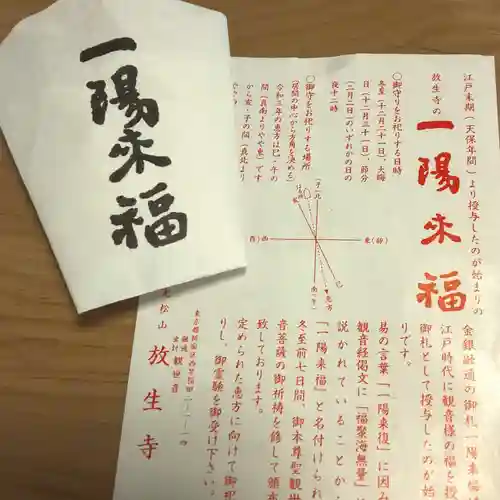 一陽来福
江戸末期(天保年間)より授与したのが始まりの
放生寺の
一陽来福
〇御守りをお祀りする日時
冬至(十二月二十一日)、大晦
日(十二月三十一日)、節分
(二月二日)のいずれかの日の
夜十二時
〇御守をお祀りする場所
(居間の中心から方角を決める)
令和三年の恵方は巳・午の
間(真南よりやや東)です
から亥・子の間(真北より
(子)北
東(卯)
(酉)西
南(午)
恵方
金銀融通の御札一陽来福
江戸時代に観音様の福を授
御札として授与したのが始
りです。
易の言葉「一陽来復」に因み
観音経偈文に「福聚海無量」
説かれていることか
「一陽来福」と名付けら
冬至前七日間、御本尊聖観世
音菩薩の御祈祷を修して頒布
致しております。
定められた恵方に向けて御祀
りし、御霊験を御受け下さい。
東京都新宿区西早稲田二-一-一四
融通
虫封
観世音
松山 放生寺